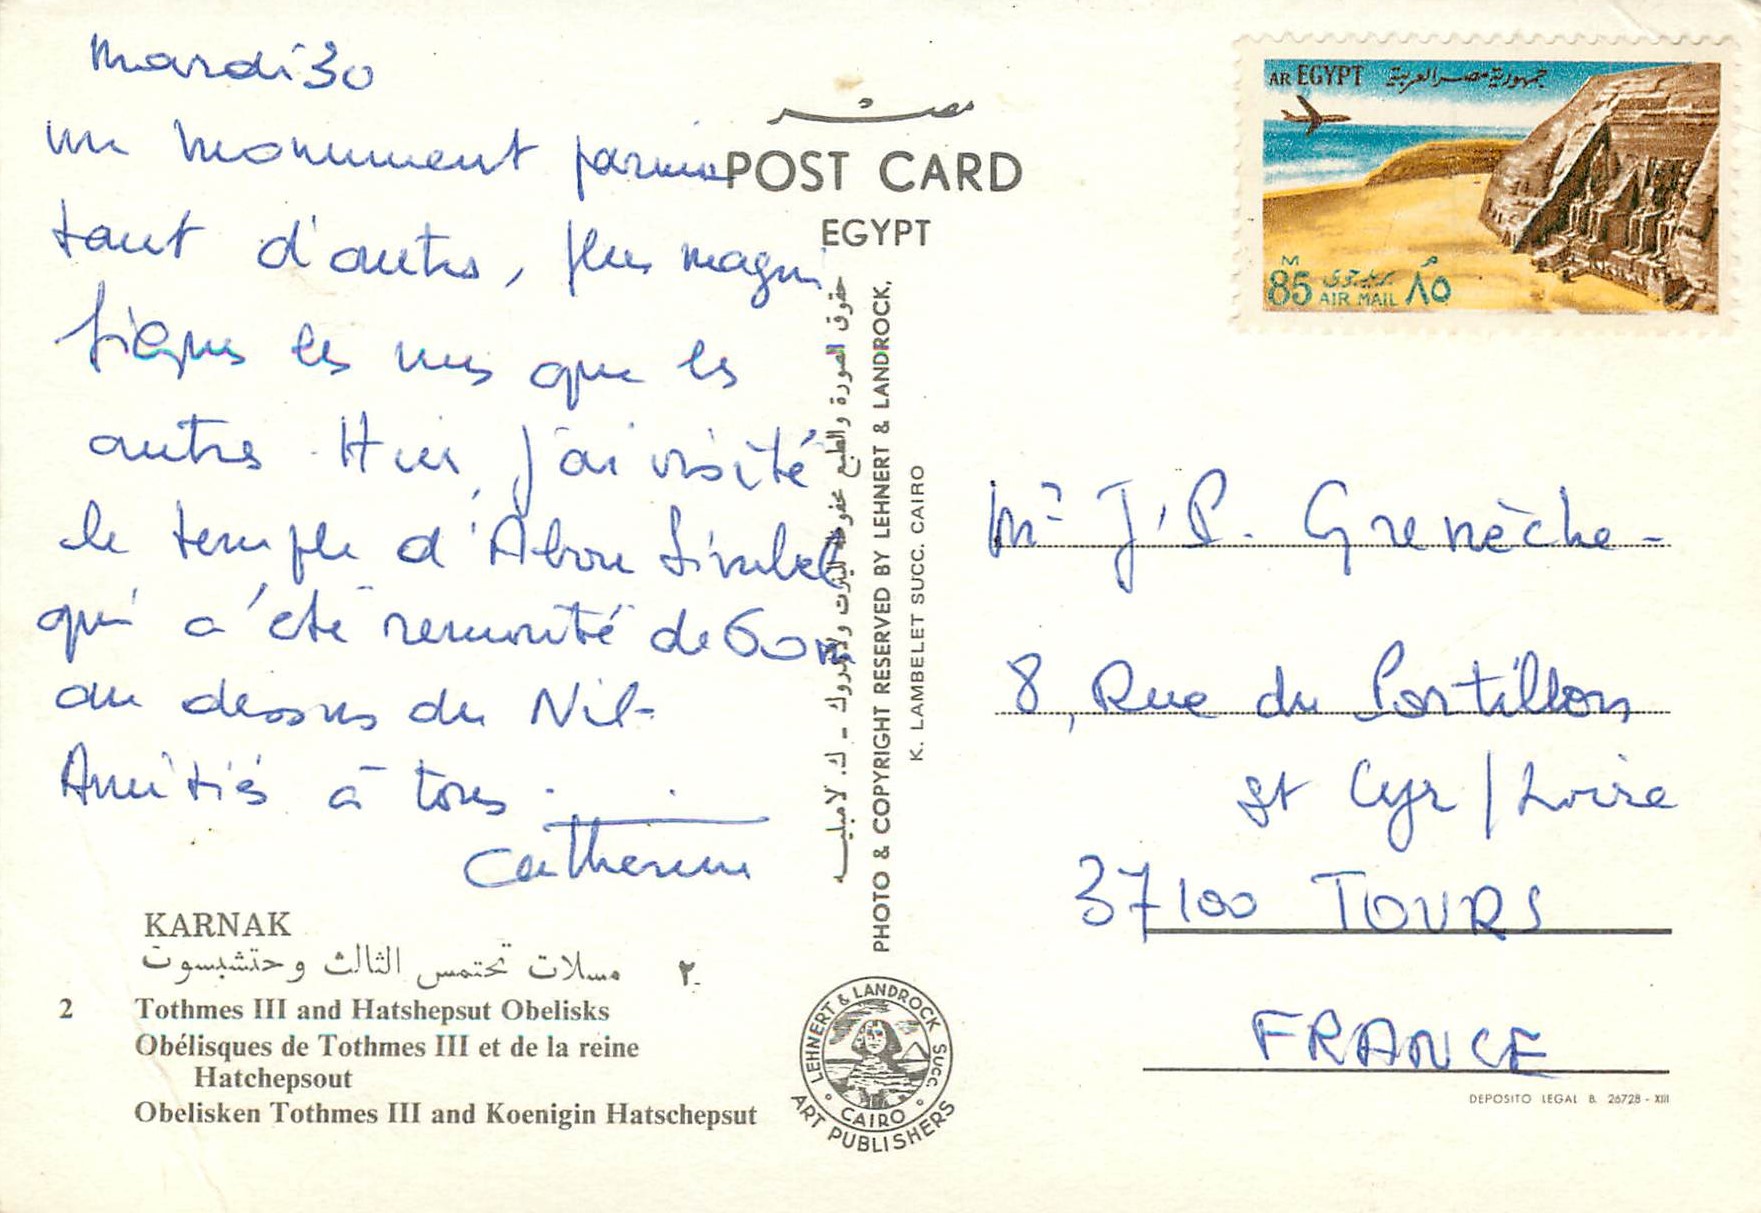 Mardi 30
un monument parmi
tant d'autres, plus magni
fiques les uns que les
autres. Hier, j'ai visité
le temple d'Abou Simbel
qui a été remonté de 60m
au dessus du Nil-
Amitiés à tous.
Catherine
KARNAK
مسلات تحتمس الثالث وحتشبسوت ٢-
2 Tothmes III and Hatshepsut Obelisks
Obélisques de Tothmes III et de la reine
Hatchepsout
Obelisken Tothmes III and Koenigin Hatschepsut
مصر
POST CARD
EGYPT
حقوق الصورة والطبع محفوظة لهنرت ولاندروك - ك. لامبليه
PHOTO & COPYRIGHT RESERVED BY LEHNERT & LANDROCK,
K. LAMBELET SUCC. CAIRO
LEHNERT & LANDROCK SUCC.
CAIRO
ART PUBLISHERS
AR EGYPT جمهورية مصر العربية
M
85 AIR MAIL ٨٥
Mr J.P. Grenèche-
8, Rue du Portillon
St Cyr / Loire
37100 TOURS
FRANCE
DEPOSITO LEGAL B. 26728 - XIII